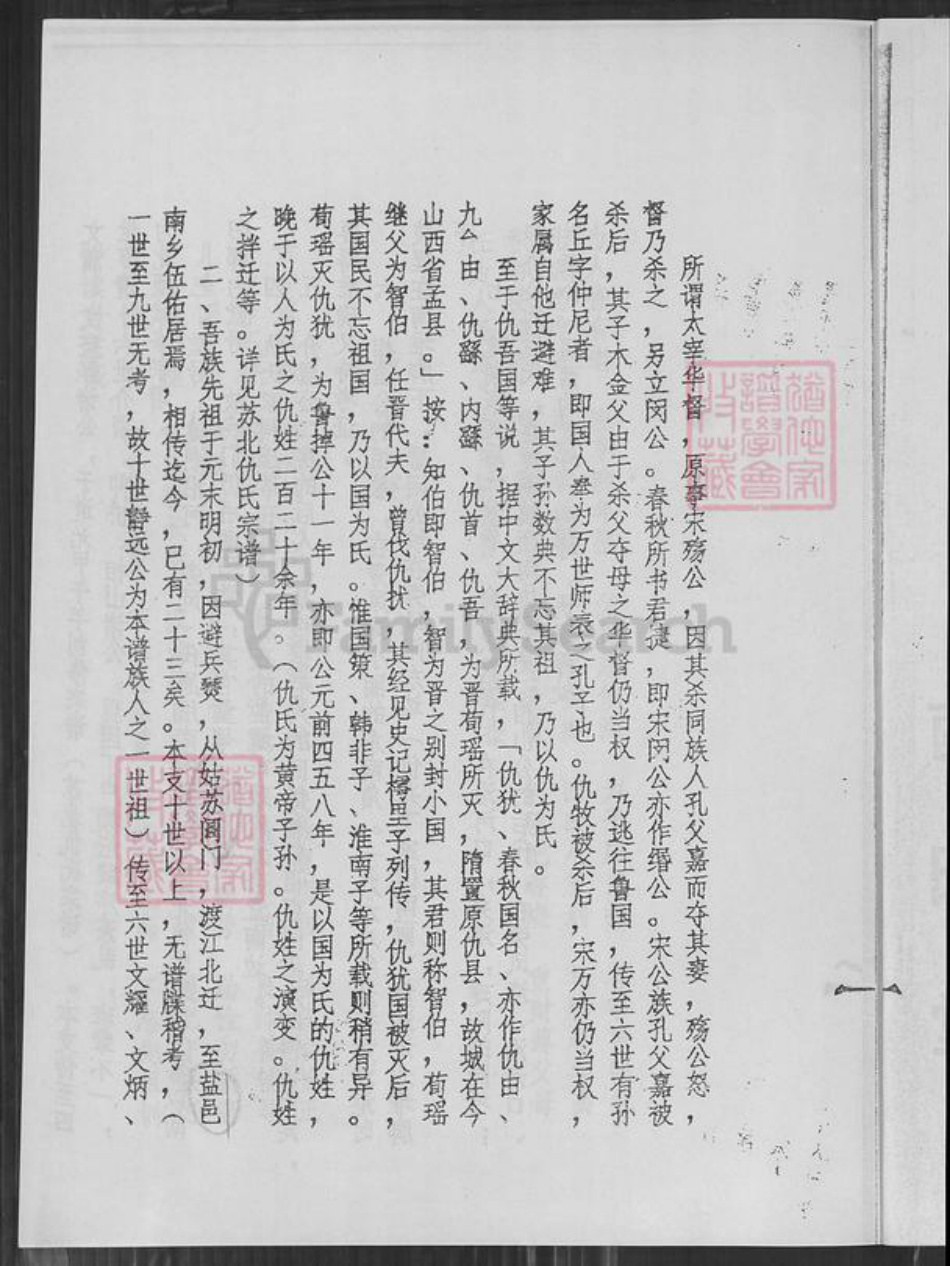 所谓太宰华督，原事宋殇公，因其杀同族人孔父嘉而夺其妻，殇公怒，
督乃杀之，另立闵公。春秋所书君捷，即宋闵公亦作缗公。宋公族孔父嘉被
杀后，其子木金父由于杀父夺母之华督仍当权，乃逃往鲁国，传至六世有孙
名丘字仲尼者，即国人奉为万世师表之孔子也。仇牧被杀后，宋万亦仍当权，
家属自他迁避难，其子孙数典不忘其祖，乃以仇为氏。
至于仇吾国等说，据中文大辞典所载，「仇犹、春秋国名、亦作仇由、
九厹由、仇繇、内繇、仇首、仇吾，为晋荀瑶所灭，隋置原仇县，故城在今
山西省孟县。」按：知伯即智伯，智为晋之别封小国，其君则称智伯，荀瑶
继父为智伯，任晋代夫，曾伐仇犹，其经见史记樗里子列传，仇犹国被灭后，
其国民不忘祖国，乃以国为氏。惟国策、韩非子、淮南子等所载则稍有异。
荀瑶灭仇犹，为鲁掉公十一年，亦即公元前四五八年，是以国为氏的仇姓，
晚于以人为氏之仇姓二百二十余年。（仇氏为黄帝子孙。仇姓之演变。仇姓
之拌迁等。详见苏北仇氏宗谱）
二、吾族先祖于元末明初，因避兵燹，从姑苏阊门，渡江北迁，至盐邑
南乡伍佑居焉，相传迄今，已有二十三矣。本支十世以上，无谱牒稽考，（
一世至九世无考，故十世磬远公为本谱族人之一世祖）传至六世文耀、文炳、
FamilySearch